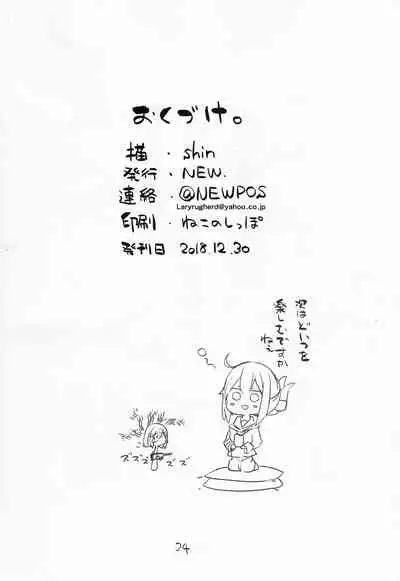 おくづけ。
描・shin
発行・NEW.
連絡・@NEWPOS
Laryrugherd@yahoo.co.jp
印刷・ねこのしっぽ
発刊日 2018.12.30
次はどいつを
楽しむですか
ねぇ
ズズズ ズズ
24